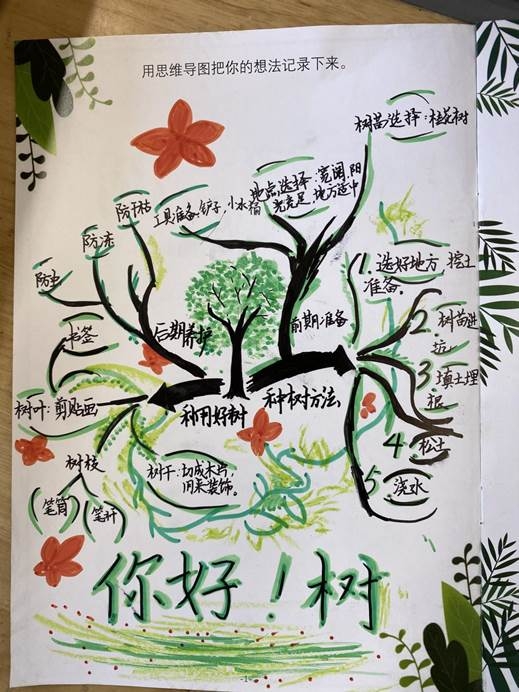 用思维导图把你的想法记录下来。
树苗选择：桂花树
地点选择：宽阔，阳
光充足，地方适中
工具准备：铲子，小水桶
防干枯
防冻
防虫
后期养护
前期准备
1.选好地方，挖土
准备。
2树苗进
坑
3填土埋
根
4松土
5浇水
种树方法
利用好树
书签
树叶：剪贴画
树枝
笔筒
笔杆
树干：切成木片，
用来装饰。
你好！树
-1-